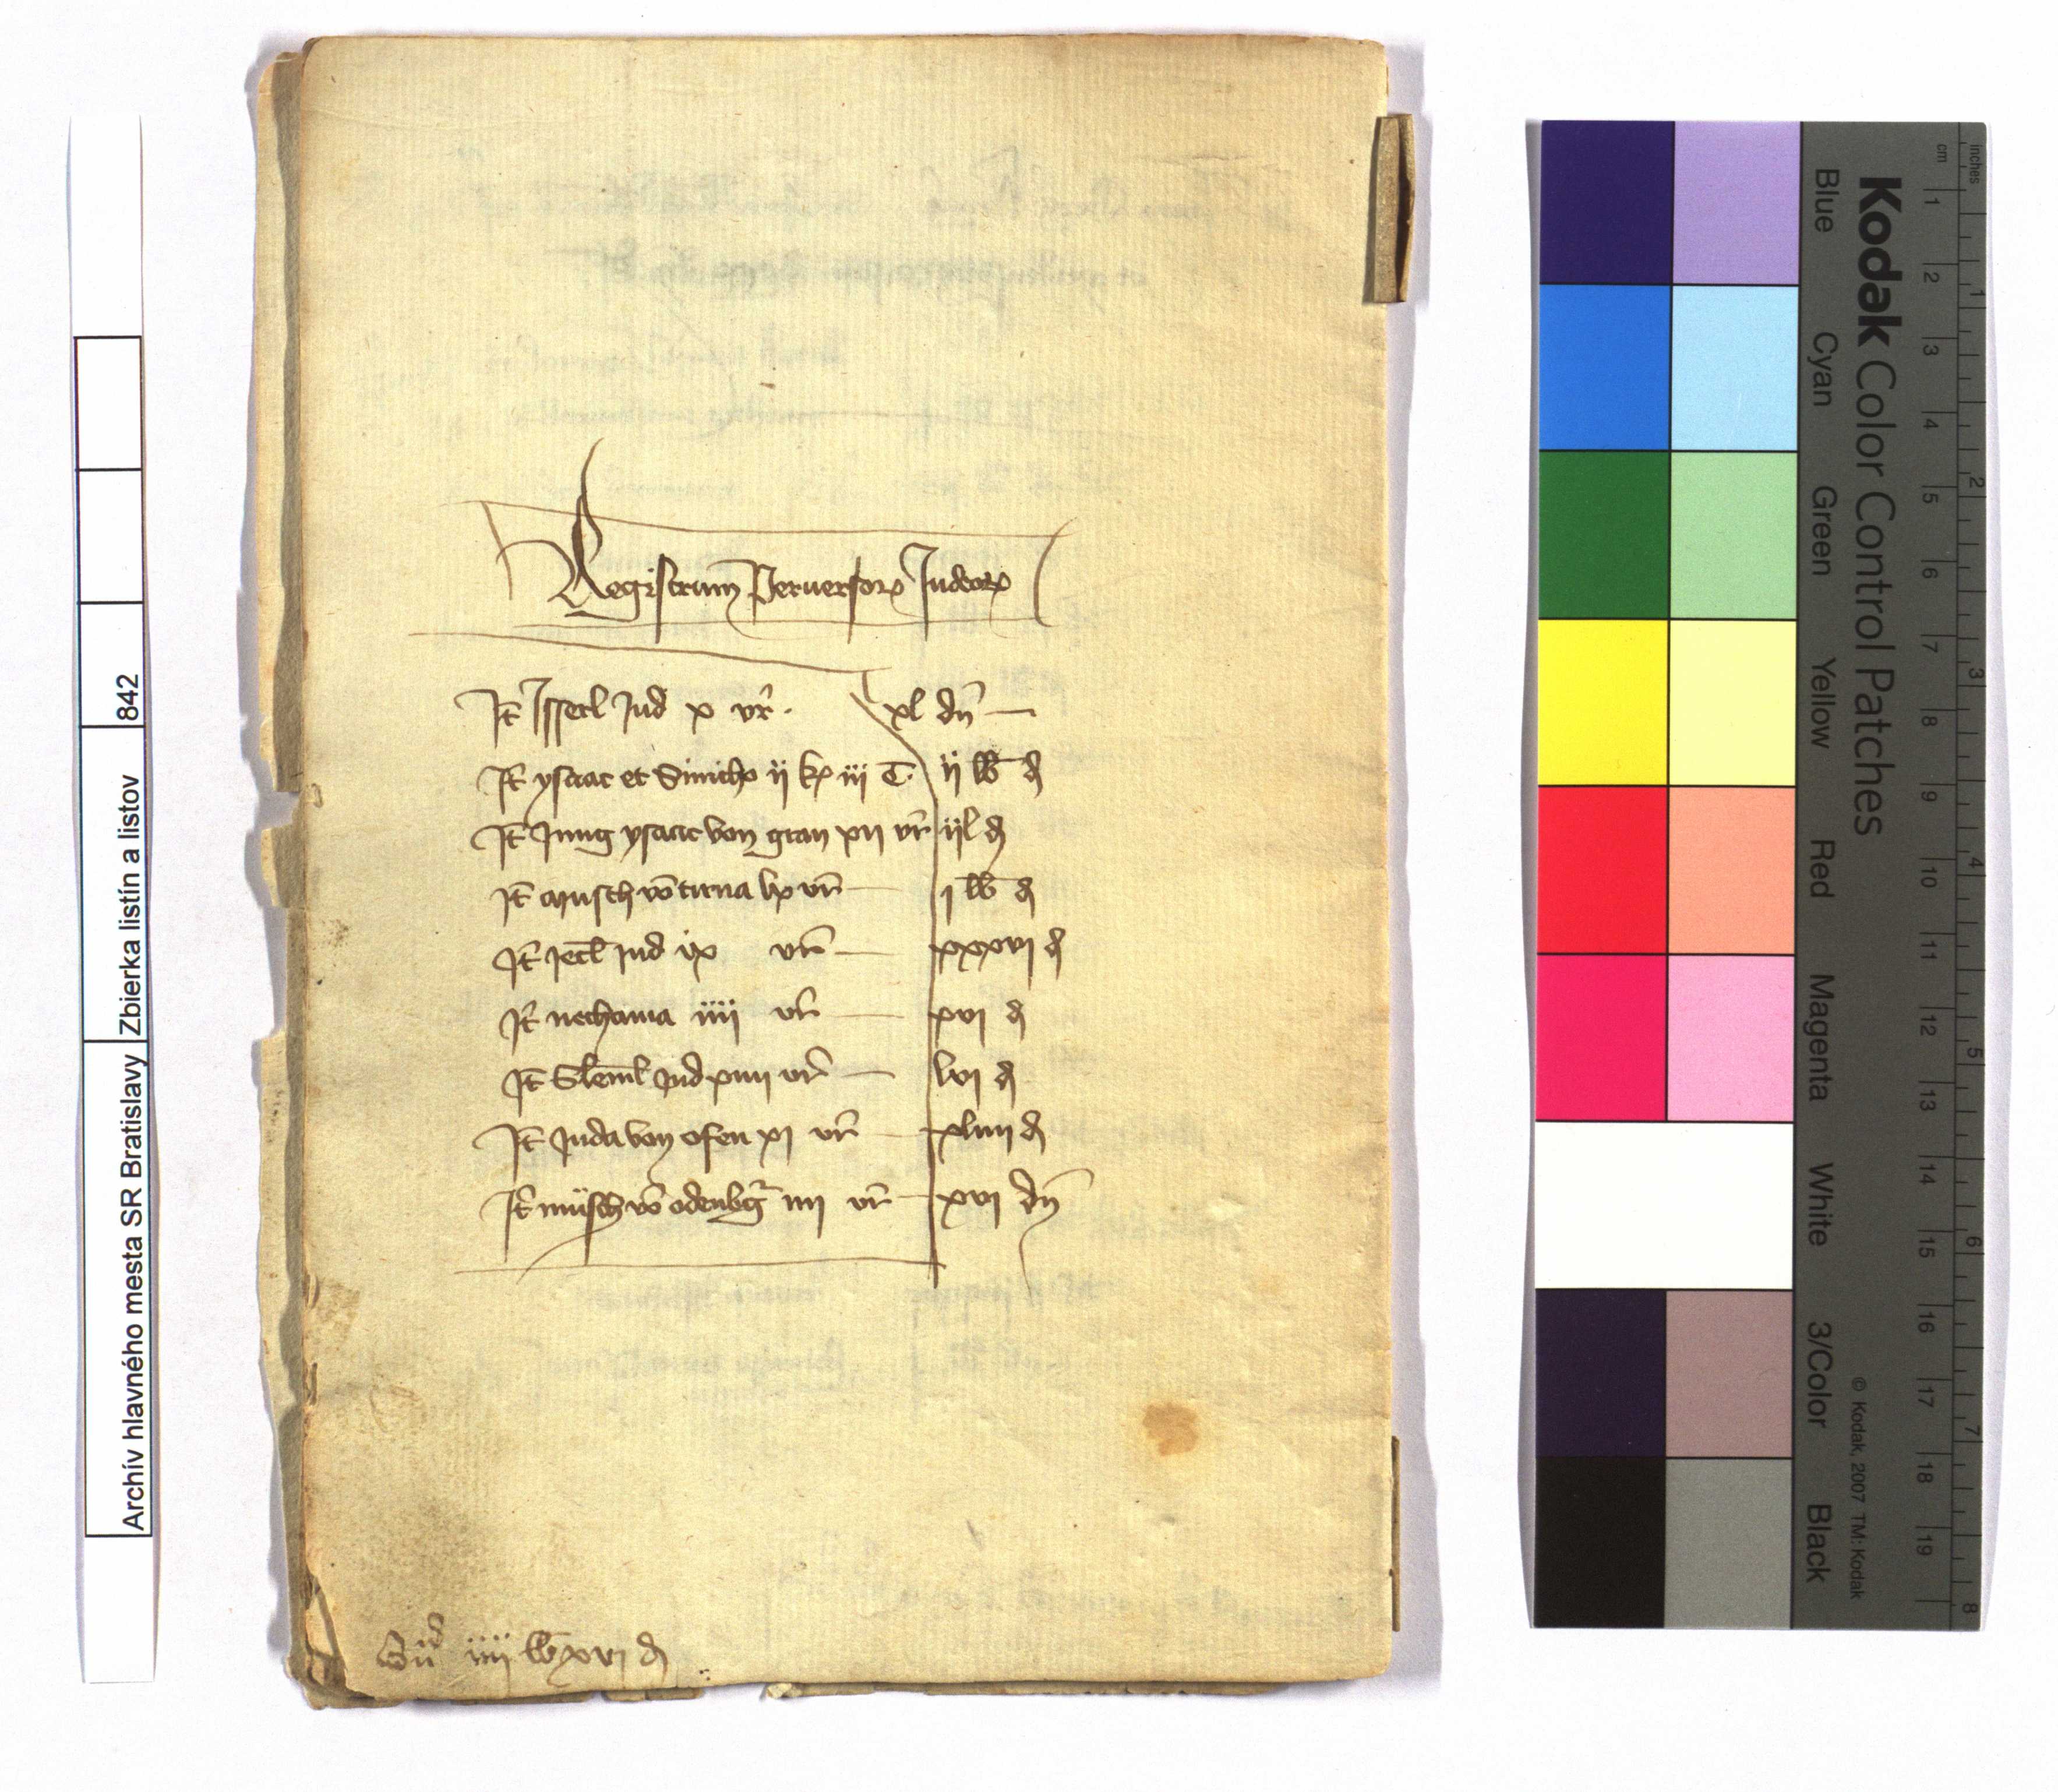 Registrum Peruersorꝝ Judeorꝝ
It̄ Isserl Jud x vr̄. xl dn̄
It̄ ysaac et Smicho ij kꝑ iij t̄. ij lb̄ ₰
It̄ Jung ysaac von gran xij vr̄ ijl ₰
It̄ Musch vō tirna lx vrn̄ j lb̄ ₰
It̄ Jecl̄ Jud ix vrn̄ xxxvj ₰
It̄ nechama iiij vr̄n xvj ₰
It̄ Sleml̄ Jud xiiij vrn̄ lvj ₰
It̄ Juda von ofen xj vrn̄ xliiij ₰
It̄ müsch vō odenbg̃ iiij vrn̄ xvj dn̄
iiij lb̄ xvj ₰
Archív hlavného mesta SR Bratislavy Zbierka listín a listov 842
Kodak Color Control Patches
© Kodak, 2007 TM: Kodak
Blue Cyan Green Yellow Red Magenta White 3/Color Black
cm 1 2 3 4 5 6 7 8 9 10 11 12 13 14 15 16 17 18 19
inches 1 2 3 4 5 6 7 8